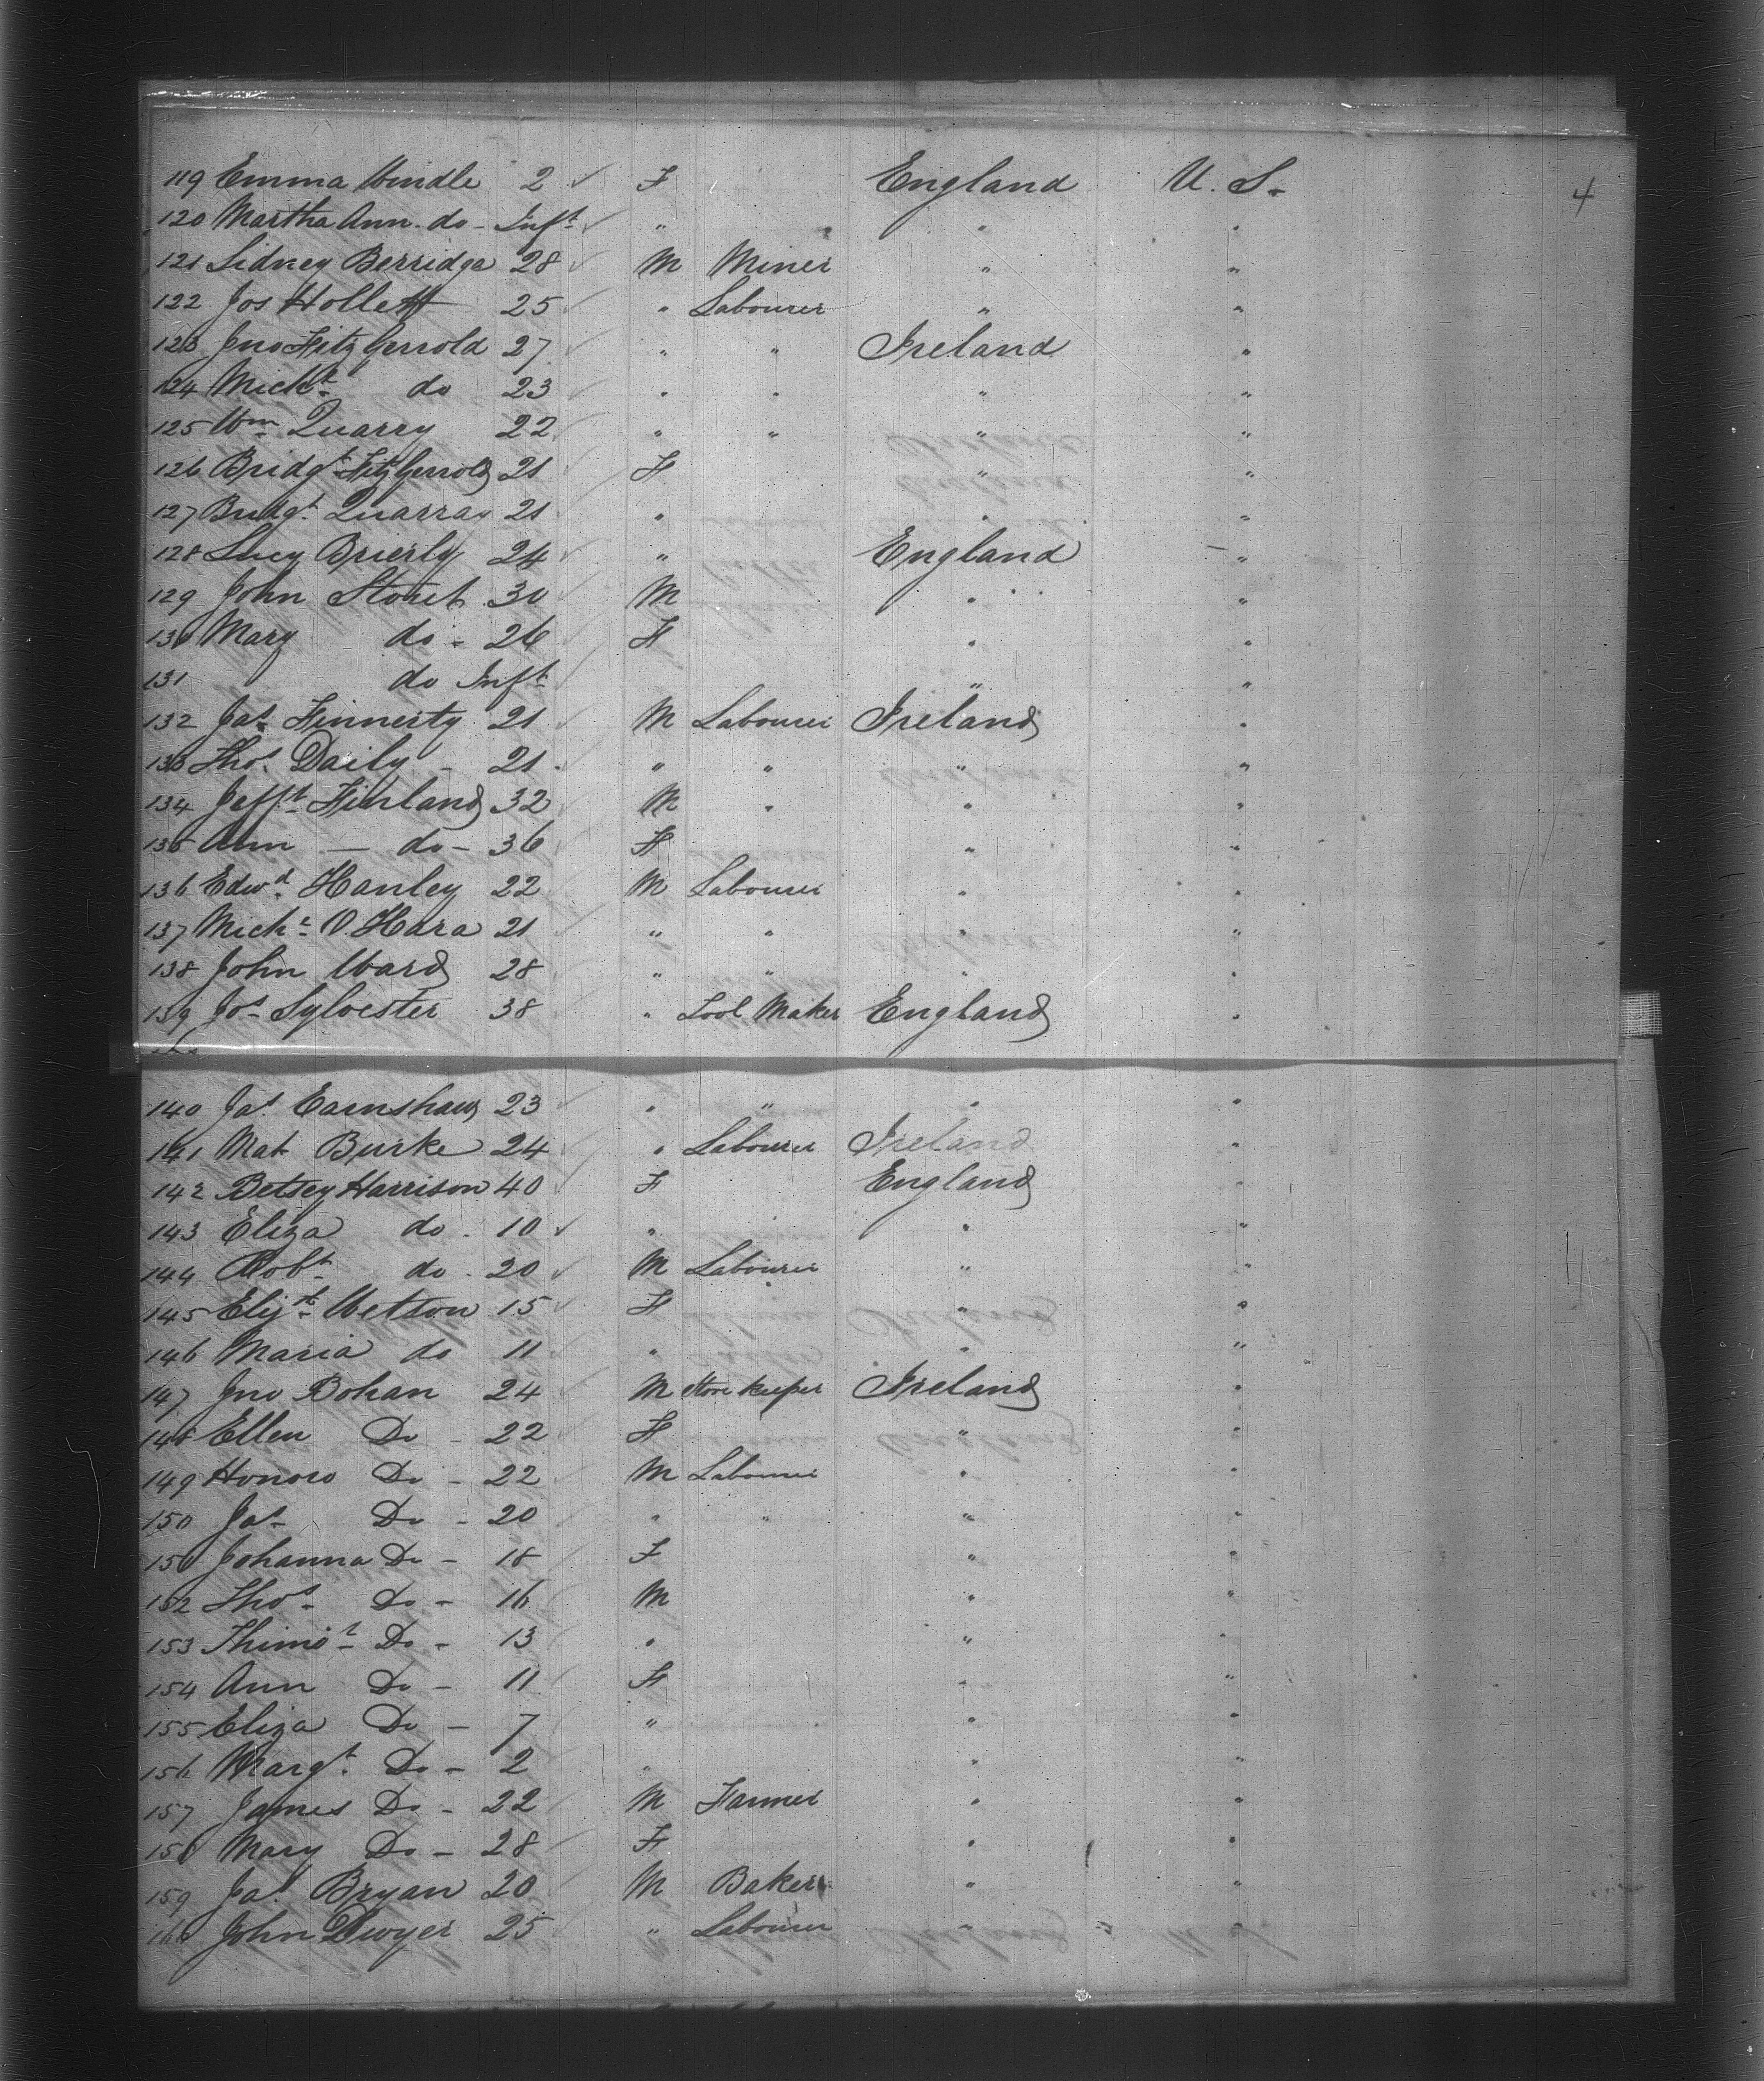 4
119 Emma Windle 2 ✓ F England U. S.
120 Martha Ann do - Inft ✓ " " "
121 Sidney Berridge 28 ✓ M Miner " "
122 Jos Hollett 25 ✓ " Labourer " "
123 Jno FitzGerrold 27 ✓ " " Ireland "
124 Michl do 23 ✓ " " " "
125 Wm Quarry 22 ✓ " " " "
126 Bridgt FitzGerrold 21 ✓ F " "
127 Bridgt Quarray 21 ✓ " " "
128 Lucy Brierly 24 ✓ " England "
129 John Storet 30 ✓ M " "
130 Mary do - 26 ✓ F " "
131 do Inft ✓ " "
132 Jas Finnerty 21 ✓ M Labourer Ireland "
133 Thos Daily - 21 " " " "
134 Jefft Finland 32 ✓ M " " "
135 Ann — do - 36 ✓ F " "
136 Edwd Hanley 22 ✓ M Labourer " "
137 Michl O.Hara 21 ✓ " " " "
138 John Ward 28 ✓ " " " "
139 Jos Sylvester 38 ✓ " Tool Maker England "
140 Jas Earnshaw 23 ✓ " " " "
141 Mat Burke 24 ✓ " Labourer Ireland "
142 Betsey Harrison 40 ✓ F England "
143 Eliza do - 10 ✓ " " "
144 Robt do - 20 ✓ M Labourer " "
145 Elizt Wetton 15 ✓ F " "
146 Maria do 11 ✓ " " "
147 Jno Bohan 24 ✓ M Store keeper Ireland "
148 Ellen Do - 22 ✓ F " "
149 Honoro Do - 22 ✓ M Labourer " "
150 Jas Do - 20 ✓ " " " "
151 Johanna Do - 18 ✓ F " "
152 Thos Do - 16 ✓ M " "
153 Thimot Do - 13 ✓ " " "
154 Ann Do - 11 ✓ F " "
155 Eliza Do - 7 ✓ " " "
156 Margt Do - 2 ✓ " " "
157 James Do - 22 ✓ M Farmer " "
158 Mary Do - 28 ✓ F " "
159 Jas Bryan 20 ✓ M Baker " "
160 John Dwyer 25 ✓ " Labourer " "